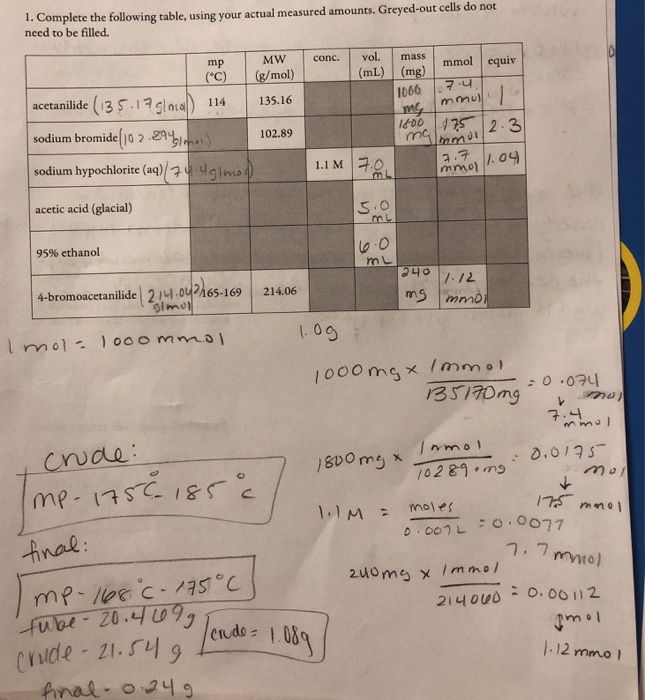 1. Complete the following table, using your actual measured amounts. Greyed-out cells do not
need to be filled.
mp (°C) MW (g/mol) conc. vol. (mL) mass (mg) mmol equiv
acetanilide (135.17 g/mol) 114 135.16 1000 mg 7.4 mmol 1
sodium bromide (102.894 g/mol) 102.89 1800 mg 175 mmol 2.3
sodium hypochlorite (aq) (74.4 g/mol) 1.1 M 7.0 mL 7.7 mmol 1.04
acetic acid (glacial) 5.0 mL
95% ethanol 6.0 mL
4-bromoacetanilide (214.042 g/mol) 165-169 214.06 240 mg 1.12 mmol
1 mol = 1000 mmol
1.0g =
1000 mg x 1 mmol / 135170 mg = 0.074 mol
↓
7.4 mmol
crude:
mp - 175°C - 185°C
1800 mg x 1 mmol / 102890 mg = 0.0175 mol
↓
175 mmol
1.1 M = moles / 0.007 L = 0.0077
7.7 mmol
final:
mp - 168°C - 175°C
240 mg x 1 mmol / 214060 = 0.00112 mol
1.12 mmol
tube - 20.469g
crude - 21.54 g
crude = 1.08g
final - 0.24g